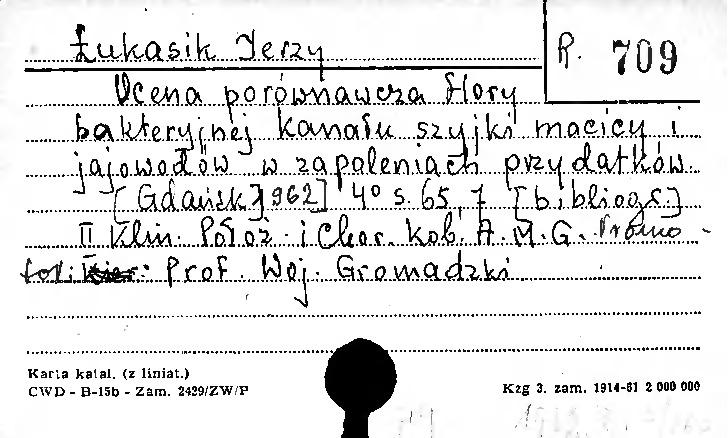 Łukasik Jerzy
R. 709
Ocena porównawcza flory
bakteryjnej kanału szyjki macicy i
jajowodów w zapaleniach przydatków.
[Gdańsk] 1962] 4° s. 65, 7 [bibliogr.]
II Klin. Położ. i Chor. Kob. A.M.G. Promo-
tor: Prof. Woj. Gromadzki
Karta katal. (z liniat.)
CWD - B-15b - Zam. 2429/ZW/P
Kzg 3. zam. 1914-61 2 000 000